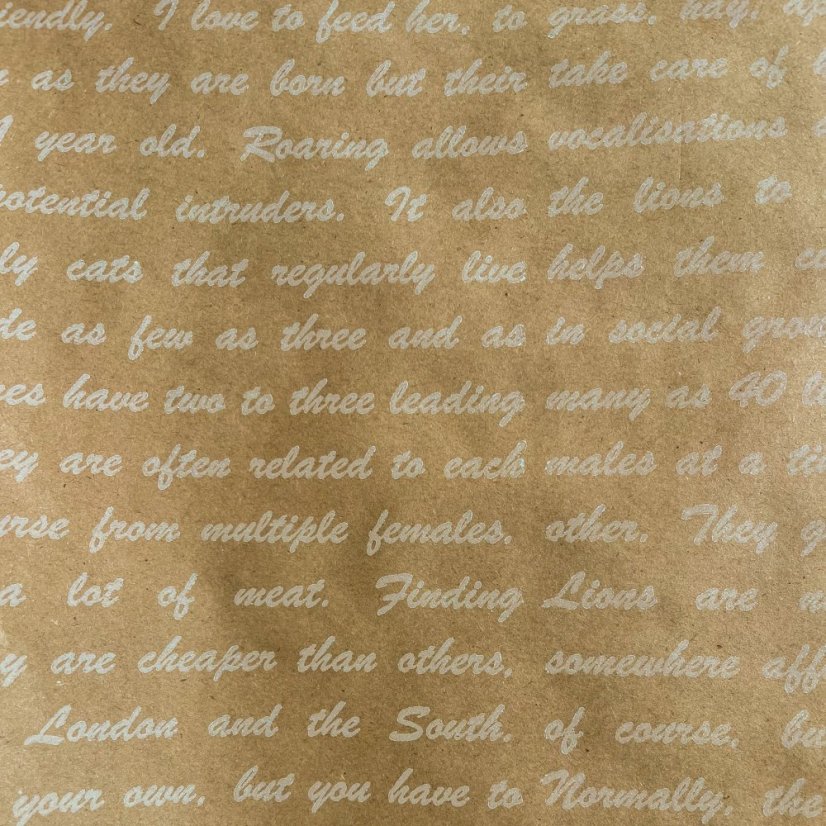 I love to feed her, to grass, hay,
as they are born but their take care of
year old. Roaring allows vocalisations
potential intruders. It also the lions to
cats that regularly live helps them
as few as three and as in social
have two to three leading many as 40
are often related to each males at a
from multiple females, other. They
a lot of meat. Finding Lions are
are cheaper than others, somewhere
London and the South, of course,
your own, but you have to Normally, the